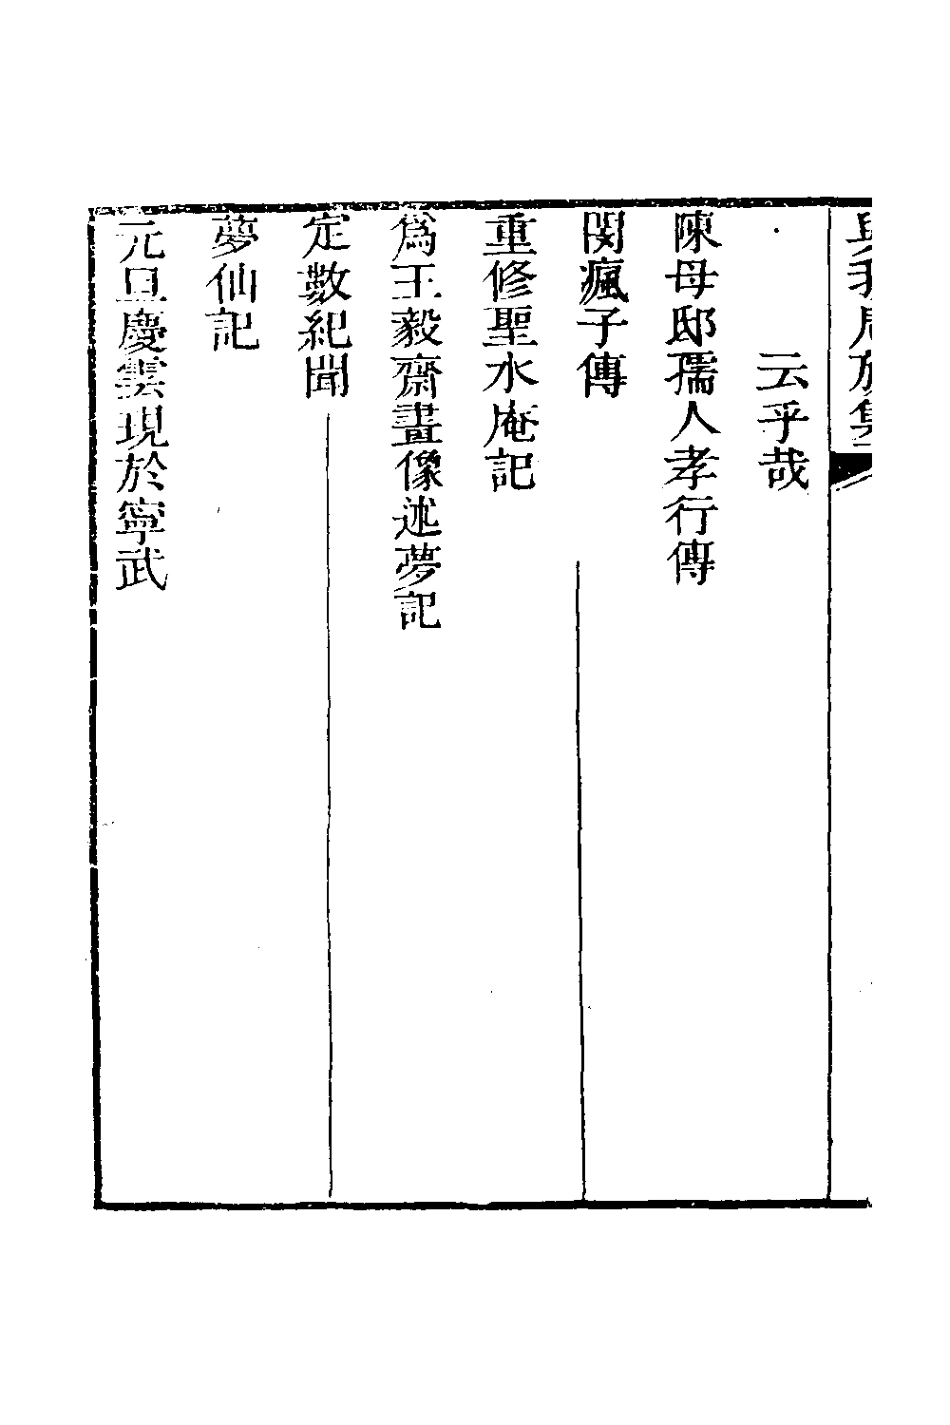 與我周旋集
云乎哉
陳母邸孺人孝行傳
関瘋子傳
重修聖水庵記
爲王毅齋畫像述夢記
定數紀聞
夢仙記
元旦慶雲現於寧武